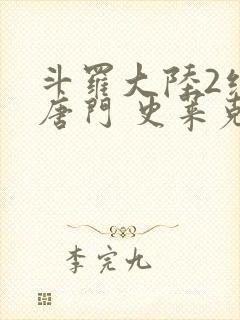 斗羅大陸2
唐門 史莱克
李完九